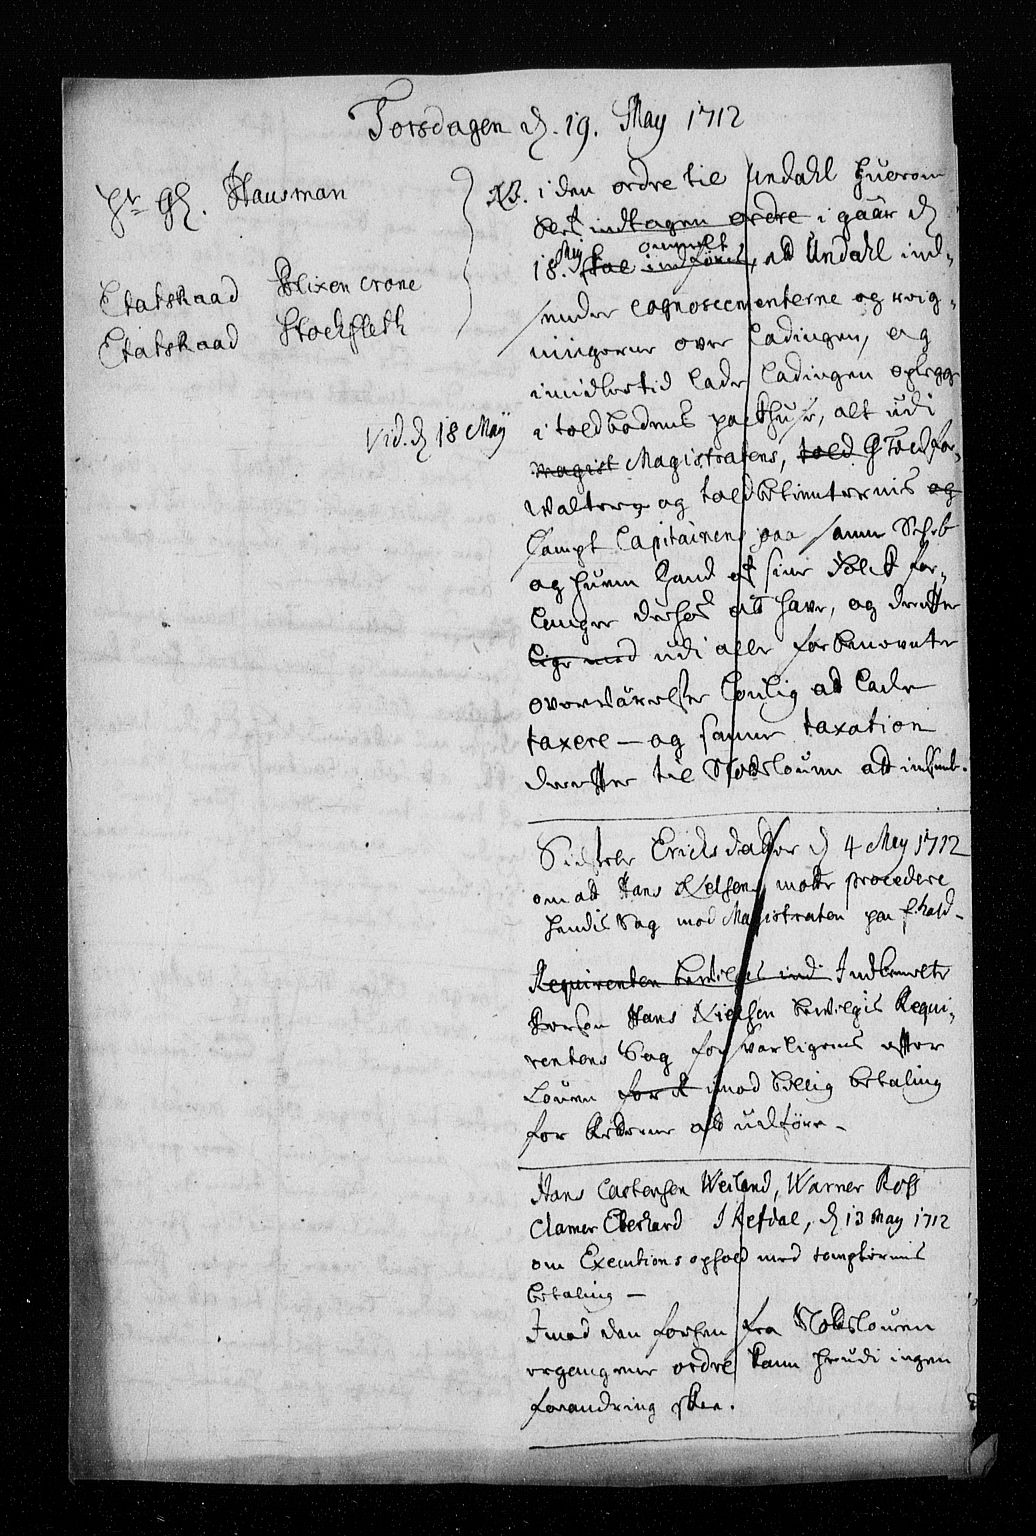 Torsdagen d. 19. May 1712
Hr. Gl. Hausman
Etatsraad Blixencrone
Etatsraad Stockfleth
Vid. d 18 Maÿ
NB. i den ordre til Undahl huorom
blef indtagen ordre i gaar d
18. Maÿ skal indføres ommelt, at Undahl ind-
sender cognoscementerne og reig-
ningerne over Ladingen, og
imidlertid lader Ladingen oplegge
i toldbodens packhuse, alt udi
magist Magistratens, told & Toldfor-
walteren og toldbetienternis og
sampt Capitainens paa samme Schib
og huem hand af sine Folck for-
langer derhos att have, og derefter
lige med udi alle forbenevnte
overwærelse loulig at lade
taxere - og samme taxation
derefter til Slodsloven att indsend.
Sidsele Ericksdatter d 4 May 1712
om att Hans Nielsen motte procedere
hendis Sag mod Magistraten paa f.hald-
Requirenten bevilges indi Indbemelte
Person Hans Nielsen bevilgis Requi-
rentens Sag forsvarligens efter
Loven for it imod billig betaling
for Retterne at udføre -
Hans Carstensen Weiland, Warner Ross
Clamer Eberhard Kefdal, d 13 May 1712
om Executions ophold med compternis
betaling -
Imod den forhen fra Slodsloven
ergangene ordre kann herudi ingen
forandring skee.